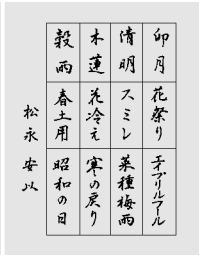 卯月
花祭り
エイプリルフール
清明
スミレ
菜種梅雨
木蓮
花冷え
寒の戻り
穀雨
春土用
昭和の日
松永 安以